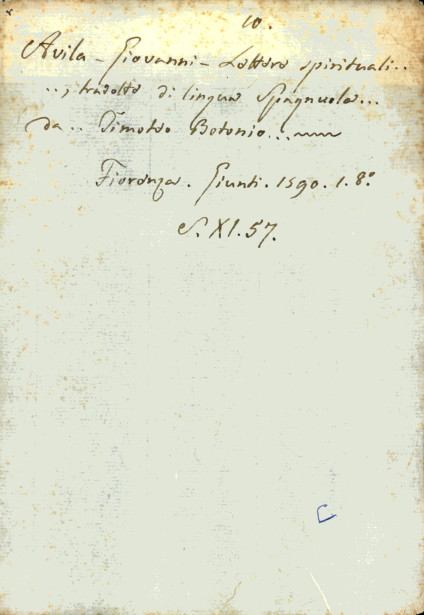 10.
Avila - Giovanni - Lettere spirituali..
.., tradotte di lingua Spagnuola...
da.. Timoteo Botonio...
Fiorenza. Giunti. 1590. 1. 8º
S. XI. 57.